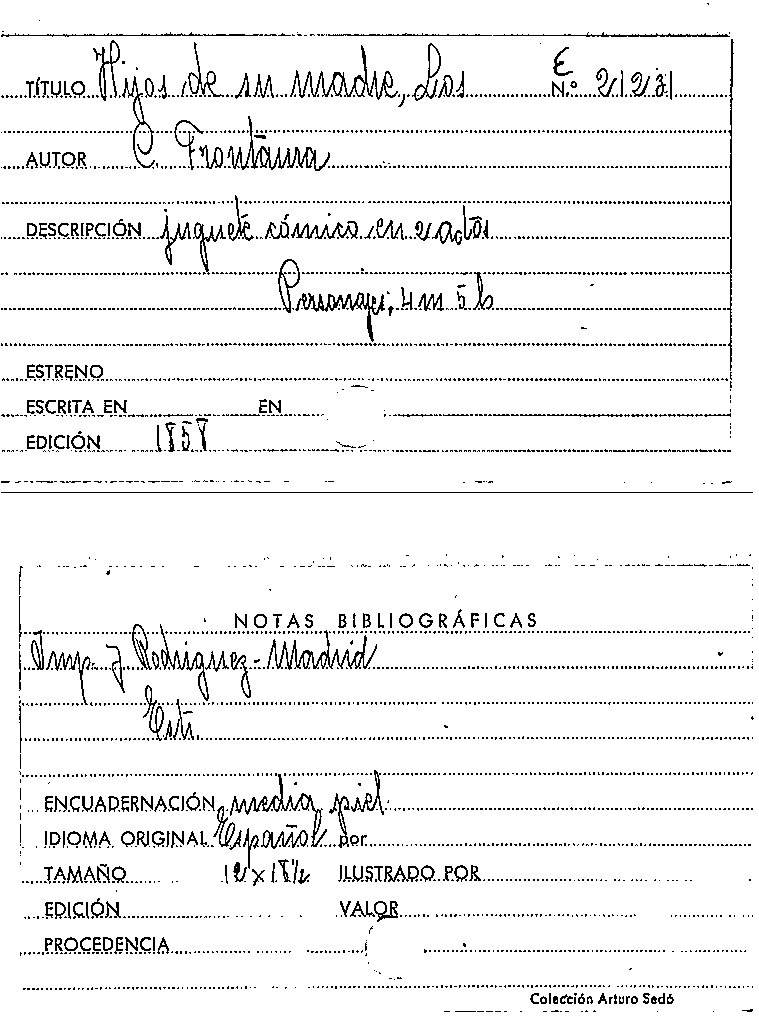 TÍTULO Hijos de su madre, Los E N.º 21231
AUTOR C. Frontaura
DESCRIPCIÓN juguete cómico en 2 actos
Personajes, 4 m 5 h
ESTRENO
ESCRITA EN EN
EDICIÓN 1858
NOTAS BIBLIOGRÁFICAS
Imp. J Rodriguez - Madrid
ENCUADERNACIÓN media piel
IDIOMA ORIGINAL Español por
TAMAÑO 12 x 18½ ILUSTRADO POR
EDICIÓN VALOR
PROCEDENCIA
Colección Arturo Sedó